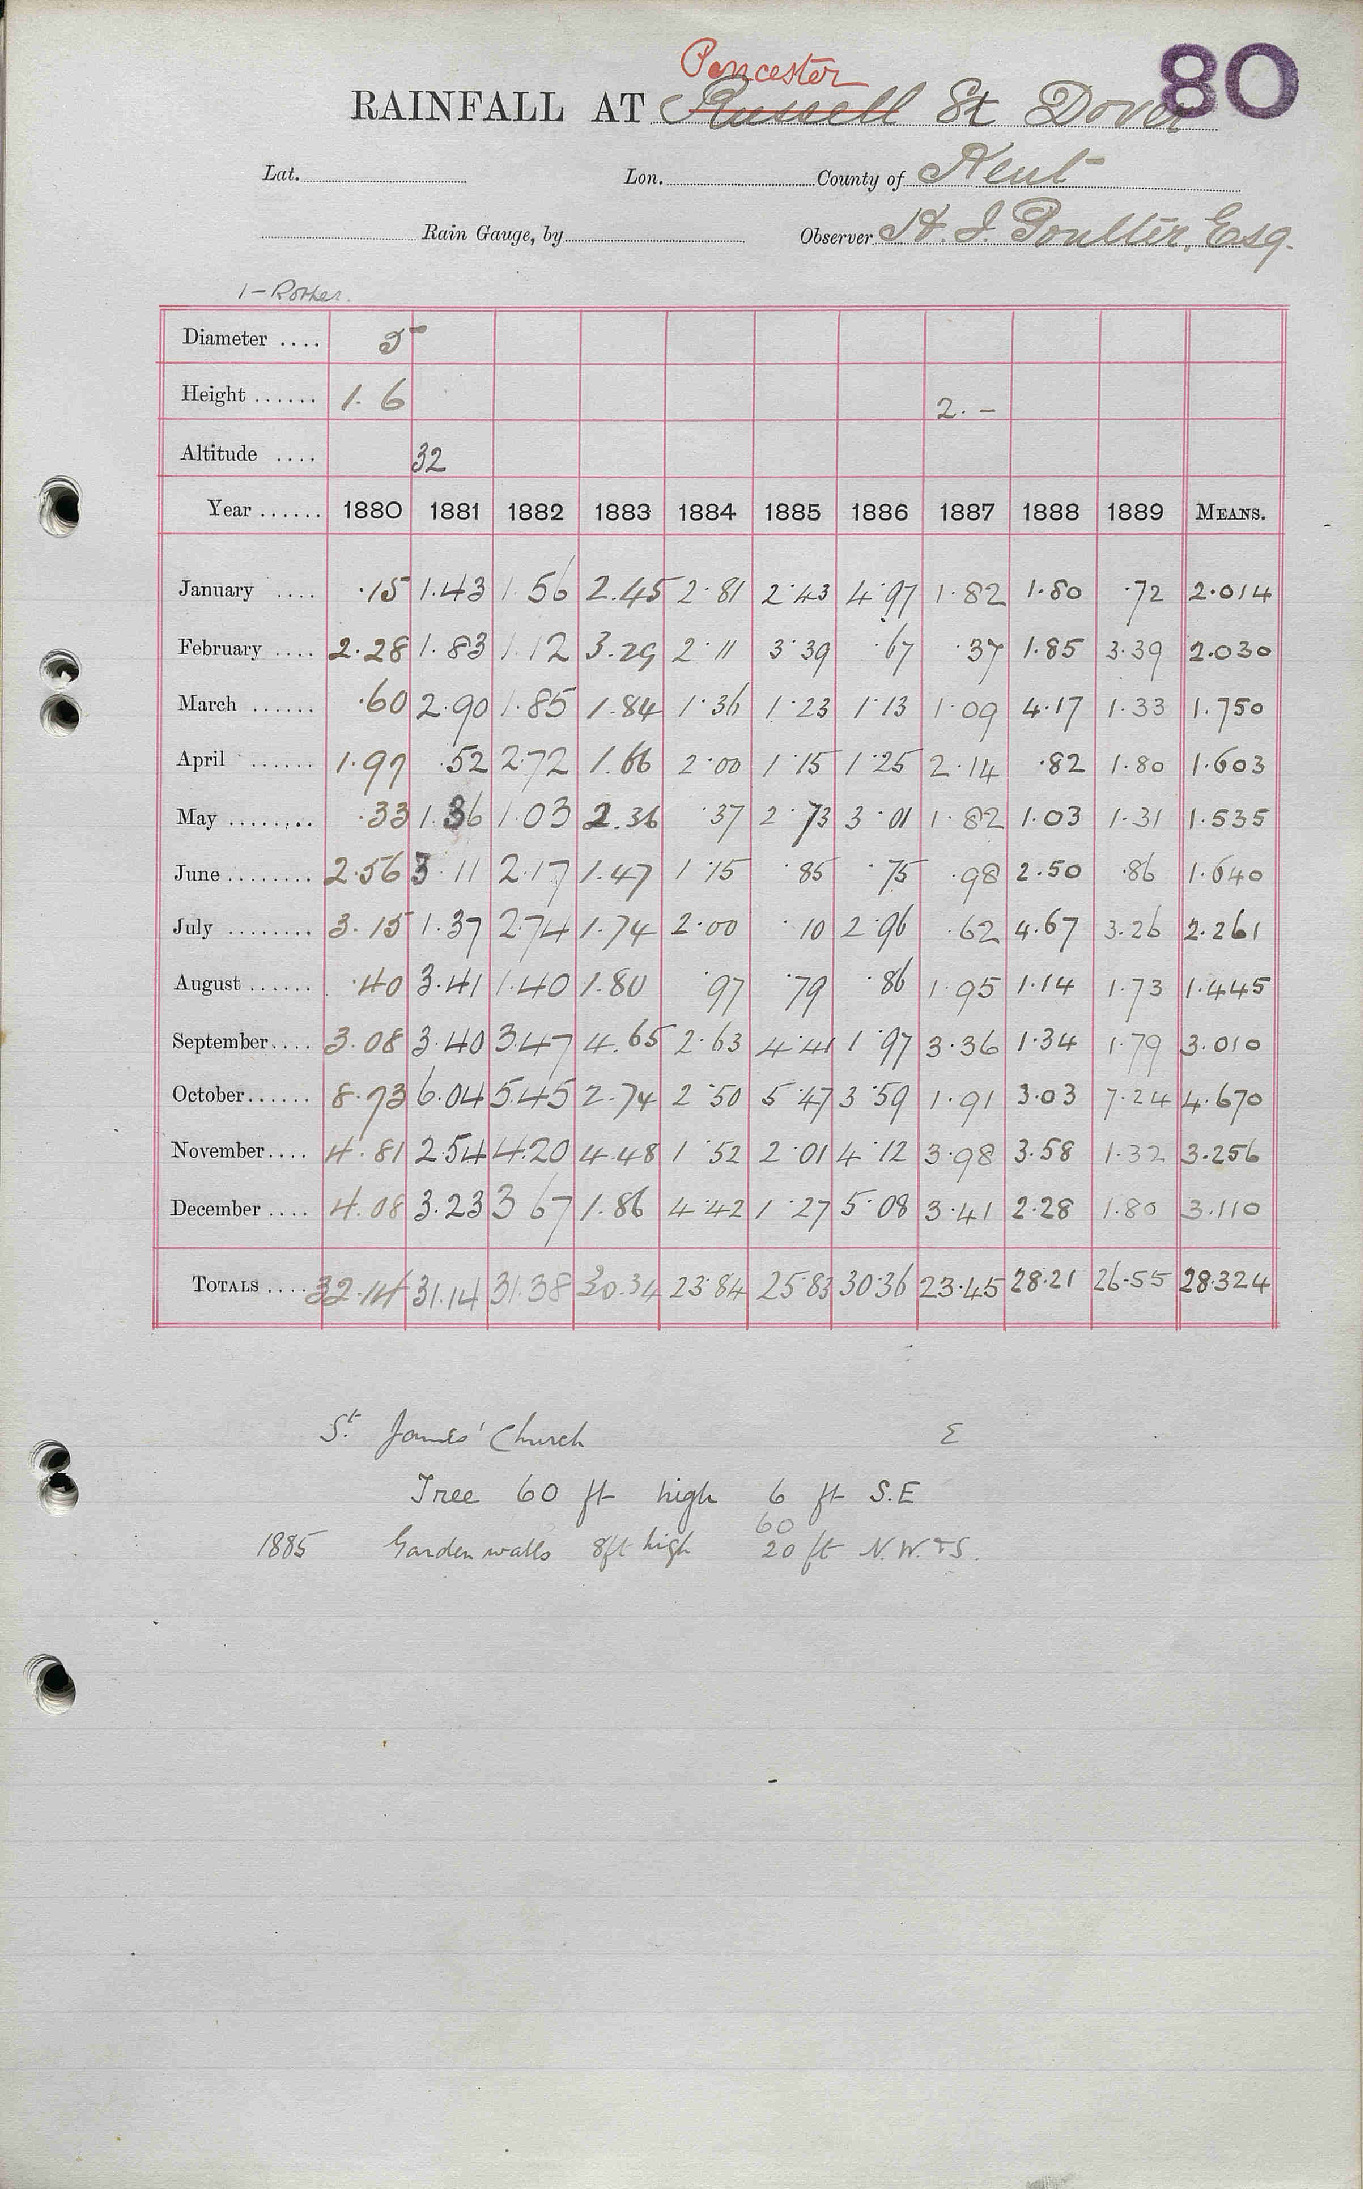 80
Pencester
RAINFALL AT Russell St Dover
Lat. Lon. County of Kent
Rain Gauge, by Observer H. J. Poulter, Esq.
1 - Rother.
Diameter .... 5
Height ...... 1.6 2. -
Altitude .... 32
Year ...... 1880 1881 1882 1883 1884 1885 1886 1887 1888 1889 MEANS.
January .... .15 1.43 1.56 2.45 2.81 2.43 4.97 1.82 1.80 .72 2.014
February .... 2.28 1.83 1.12 3.29 2.11 3.39 .67 .37 1.85 3.39 2.030
March ...... .60 2.90 1.85 1.84 1.36 1.23 1.13 1.09 4.17 1.33 1.750
April ...... 1.97 .52 2.72 1.66 2.00 1.15 1.25 2.14 .82 1.80 1.603
May ........ .33 1.36 1.03 2.36 .37 2.73 3.01 1.82 1.03 1.31 1.535
June ........ 2.56 3.11 2.17 1.47 1.15 .85 .75 .98 2.50 .86 1.640
July ........ 3.15 1.37 2.74 1.74 2.00 .10 2.96 .62 4.67 3.26 2.261
August ...... .40 3.41 1.40 1.80 .97 .79 .86 1.95 1.14 1.73 1.445
September .... 3.08 3.40 3.47 4.65 2.63 4.41 1.97 3.36 1.34 1.79 3.010
October ...... 8.73 6.04 5.45 2.74 2.50 5.47 3.59 1.91 3.03 7.24 4.670
November .... 4.81 2.54 4.20 4.48 1.52 2.01 4.12 3.98 3.58 1.32 3.256
December .... 4.08 3.23 3.67 1.86 4.42 1.27 5.08 3.41 2.28 1.80 3.110
TOTALS .... 32.14 31.14 31.38 30.34 23.84 25.83 30.36 23.45 28.21 26.55 28.324
St. James' Church E
Tree 60 ft high 6 ft S.E
60
1885 Garden walls 8ft high 20 ft N.W. & S.